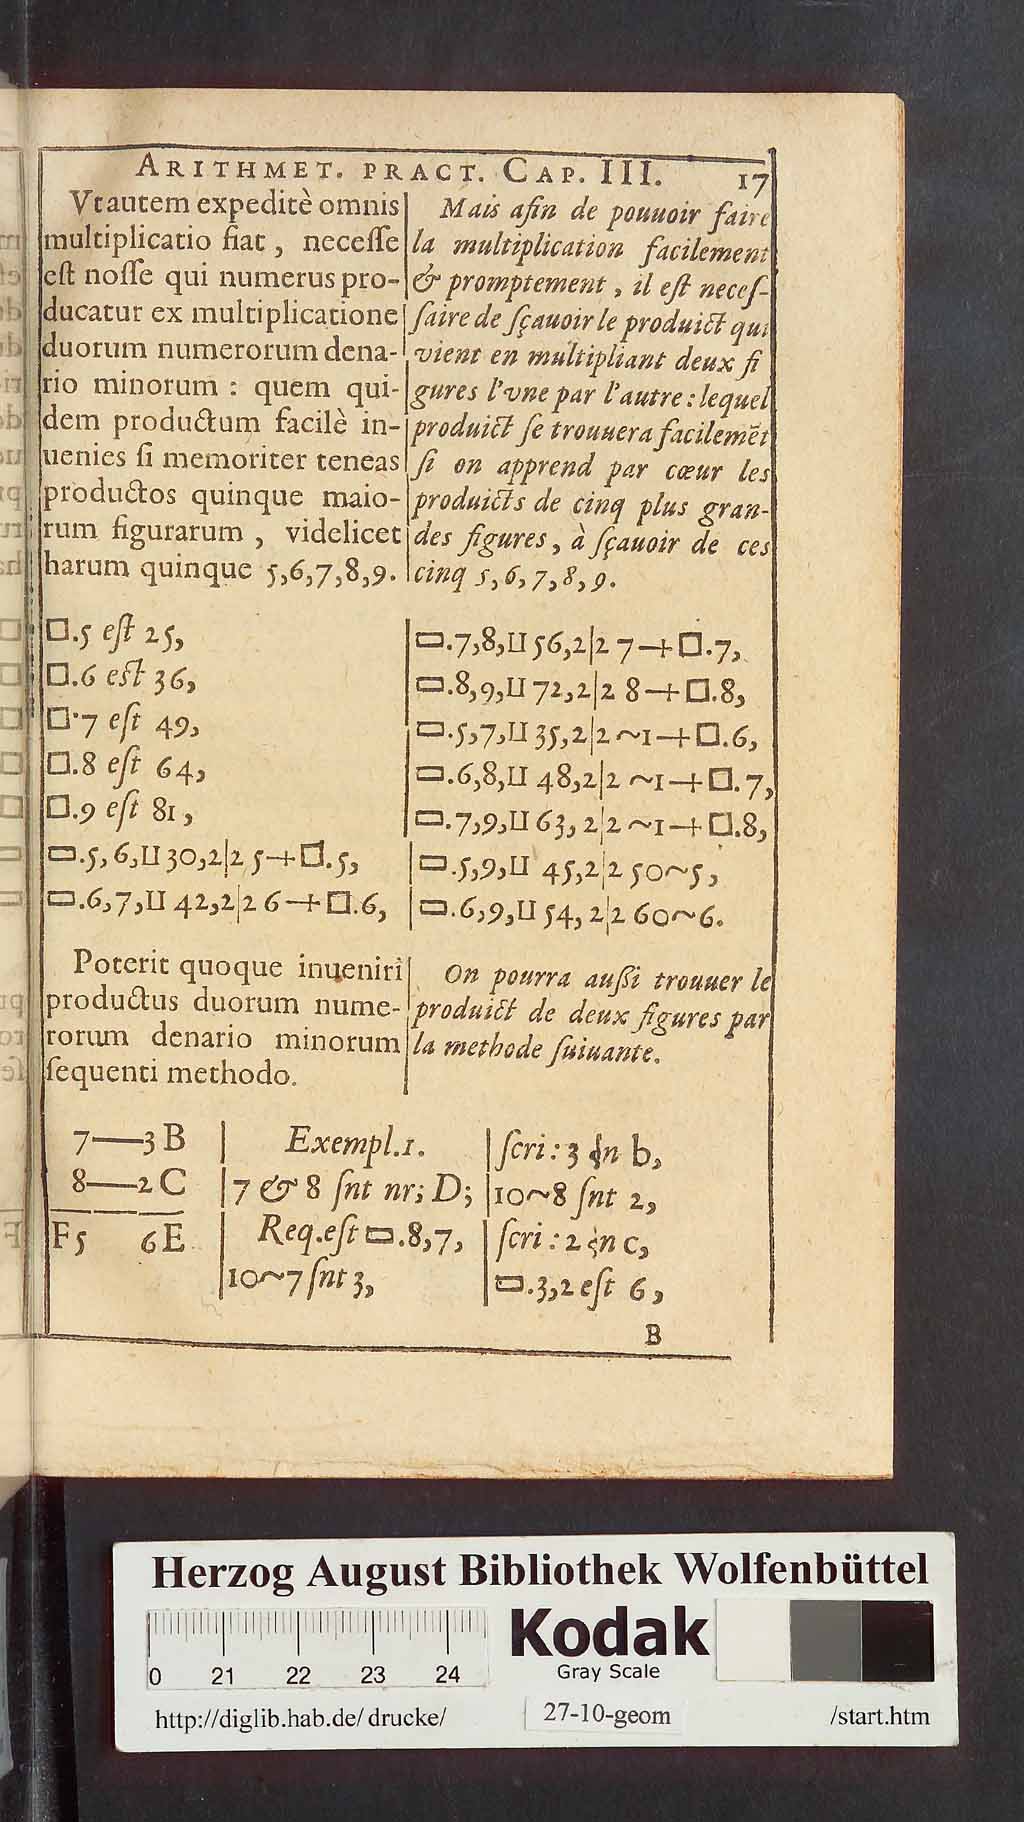 ARITHMET. PRACT. CAP. III. 17
Vt autem expeditè omnis
multiplicatio fiat, necesſe
eſt noſſe qui numerus pro-
ducatur ex multiplicatione
duorum numerorum dena-
rio minorum : quem qui-
dem productum facilè in-
uenies ſi memoriter teneas
productos quinque maio-
rum figurarum , videlicet
harum quinque 5,6,7,8,9.
Mais afin de pouuoir faire
la multiplication facilement
& promptement , il eſt neceſ-
ſaire de ſçauoir le produict qui
vient en multipliant deux fi
gures l'vne par l'autre : lequel
produict ſe trouuera facilemēt
ſi on apprend par cœur les
produicts de cinq plus gran-
des figures, à ſçauoir de ces
cinq 5, 6, 7, 8, 9.
□.5 eſt 25,
□.6 eſt 36,
□.7 eſt 49,
□.8 eſt 64,
□.9 eſt 81,
▭.5,6,⊔ 30,2|2 5+□.5,
▭.6,7,⊔ 42,2|2 6+□.6,
▭.7,8,⊔ 56,2|2 7+□.7,
▭.8,9,⊔ 72,2|2 8+□.8,
▭.5,7,⊔ 35,2|2 ~1+□.6,
▭.6,8,⊔ 48,2|2 ~1+□.7,
▭.7,9,⊔ 63,2|2 ~1+□.8,
▭.5,9,⊔ 45,2|2 50~5,
▭.6,9,⊔ 54,2|2 60~6.
Poterit quoque inueniri
productus duorum nume-
rorum denario minorum
ſequenti methodo.
On pourra auſſi trouuer le
produict de deux figures par
la methode ſuiuante.
7—3 B
8—2 C
F 5 6 E
Exempl.1.
7 & 8 ſnt nr; D;
Req.eſt ▭.8,7,
10~7 ſnt 3,
ſcri: 3 n b,
10~8 ſnt 2,
ſcri: 2 n c,
▭.3,2 eſt 6,
B
Herzog August Bibliothek Wolfenbüttel
Kodak
Gray Scale
0 21 22 23 24
http://diglib.hab.de/ drucke/ 27-10-geom /start.htm